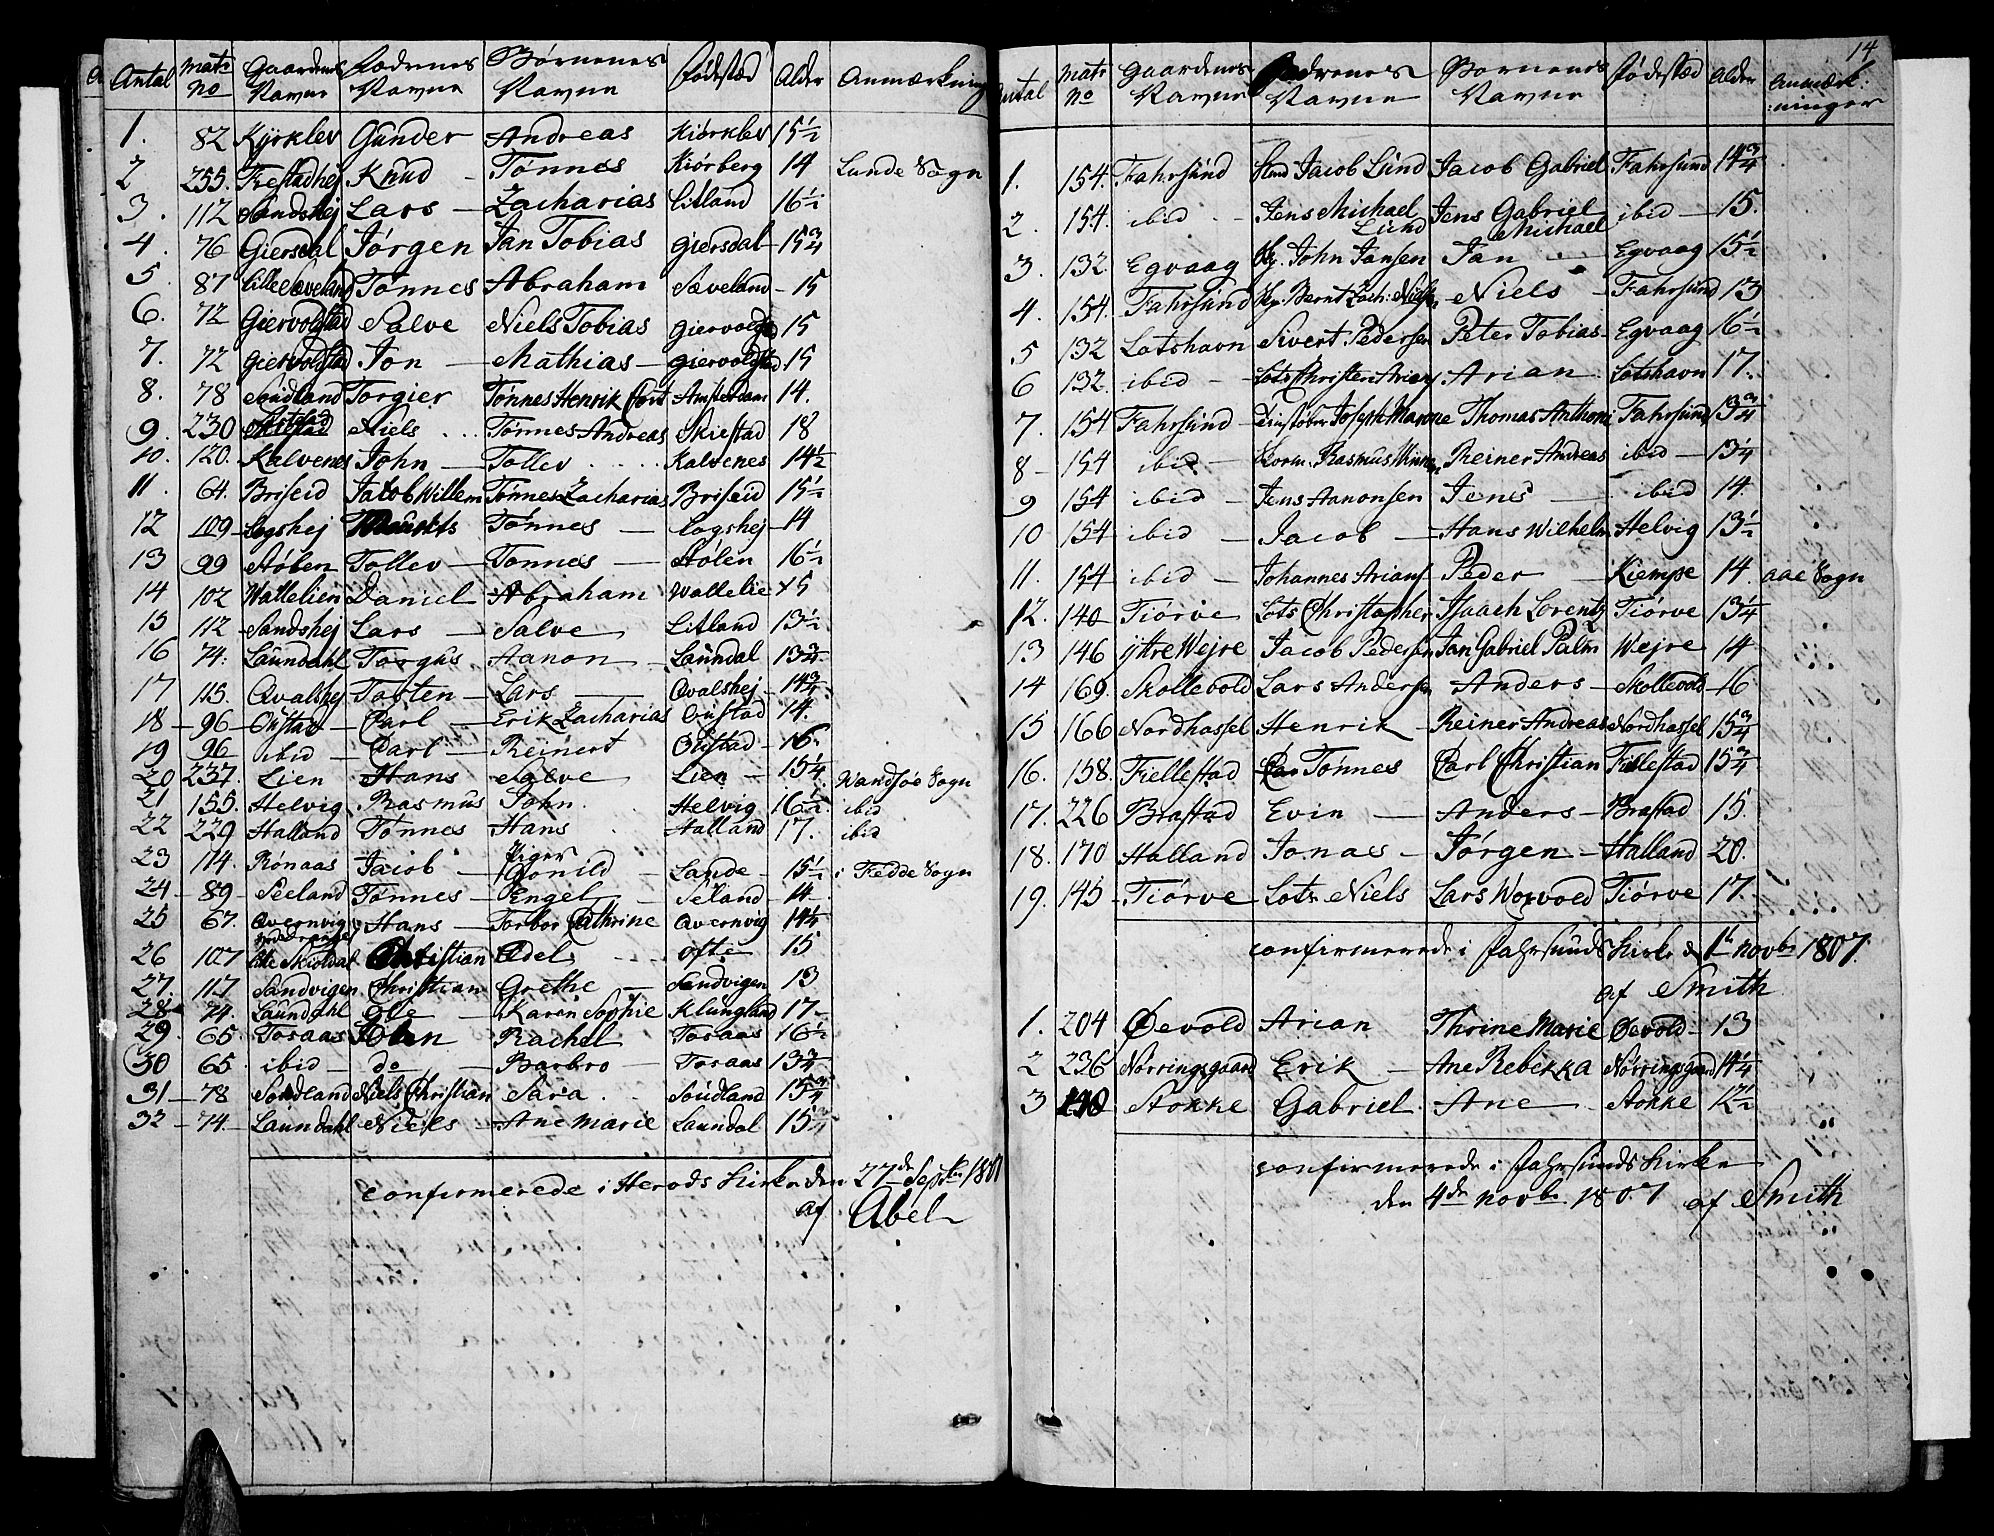 Antal Matr No Gaardenes Navne Fædrenes Navne Børnenes Navne Fødestæd Alder Anmærkning
1. 82 Kyrklev Gunder Andreas Kiørklev 15½
2 255. Frestadhej Knud Tønnes Kiørberg 14 Lunde Sogn
3. 112 Sandshej Lars Zacharias Litland 16½
4. 76 Giersdal Jørgen Jan Tobias Giersdal 15¾
5. 87 Lille Sæveland Tønnes Abraham Sæveland 15
6. 72 Giervolstad Salve Niels Tobias Giervolds 15
7. 72 Giervolstad Jon Mathias Giervoldstad 15
8. 78 Sudland Torgier Tønnes Henrik Cort Amsterdam 14.
9. 230 Skiestad Niels Tønnes Andreas Skiestad 18
10. 120. Kalvenes John Tollev Kalvenes 14½
11. 64. Briseid Jacob Willem Tønnes Zacharias Briseid 15½
12 109 Logshej Tønnes Logshej 14
13 99 Stølen Tollev Tønnes Stølen 16½
14 102 Wattelien Daniel Abraham Wattelie 15
15 112 Sandshej Lars Salve Litland 13½
16 74. Laundahl Torgus Aanon Laundal 13¾
17 115. Qvalshej Torsten Lars Qvalshej 14¾
18 96 Oustad Carl Erik Zacharias Oustad 14.
19 96 ibid Carl Reinert Oustad 16
20 237. Lien Hans Salve Lien 15¼ Wandsøe Sogn
21 155. Helvig Rasmus John Helvig 16½ ibid
22 229 Halland Tønnes Hans Halland 17. ibid
Piger
23 114. Rønaas Jacob Gonild Lande 15½ i Fedde Sogn
24 89 Seeland Tønnes Engel Seland 14
25 67. Qvernvig Hans Torbor Cathrine Qvernvig 14¼
26 107 lille Skioldal Christian Edel ofte 15
27. 117 Sandvigen Christian Grethe Sandvigen 13
28 74. Laundahl Ole Karen Sophie Klungland 17
29. 65. Toraas Rachel Toraas 16½
30 65 ibid do Barbro Toraas 13¾
31 78 Sondland Niels Christian Sara Soudland 15¾
32 74. Laundahl Niels Ane Marie Laundal 15
confirmerede i Herods Kirke den 27de Septbr 1807
af Abel
14
Antal Matr No Gaardenes Navne Fædrenes Navne Børnenes Navne Fødestæd Alder Anmærkninger
1. 154. Fahrsund Jacob Lund Jacob Gabriel Fahrsund 14¾
2 154. ibid Jens Michael Lund Jens Gabriel Michael ibid 15.
3. 132. Egvaag John Jansen Jan Egvaag 15½
4. 154. Fahrsund Bernt Zach: Nielsen Niels Fahrsund 13
5 132 Lotshavn Sivert Pedersen Peter Tobias Egvaag 16½
6 132. ibid Lots Christen Arians Arian Lotshavn 17.
7. 154 Fahrsund Joseph Thomas Anthoni Fahrsund 13¾
8 154 ibid Rasmus Reiner Andreas ibid 13¼
9 154 ibid Jens Aanonsen Jens ibid 14.
10 154 ibid Jacob Hans Wilhelm Helvig 13½
11. 154 ibid Johannes Arians Peder Kiempe 14. aae Sogn
12. 140 Tiørve Lots Christopher Isaach Lorentz Tiørve 13¼
13 146 ÿttre Wejre Jacob Pedersen Jan Gabriel Palm Wejre 14
14 169. Skollevold Lars Andersen Anders Skollevold 16
15 166 Nordhassel Henrik Reiner Andreas Nordhassel 15¾
16. 158. Fiellestad Tønnes Carl Christian Fiellestad 15¾
17. 226 Brastad Evin Anders Brastad 15.
18. 170 Halland Jonas Jørgen Halland 20.
19. 145 Tiørve Lots Niels Lars Worvold Tiørve 17.
confirmerede i Fahrsunds Kirke d 1te novbr 1807.
af Smith
1. 204 Øevold Arian Thrine Marie Øevold 13
2 236 Nørringsgaard Erik Ane Rebekka Nørringsgaard 14¼
3 Stokke Gabriel Ane Stokke 12½
confirmerede i Fahrsunds Kirke
den 4de novbr 1807 af Smith